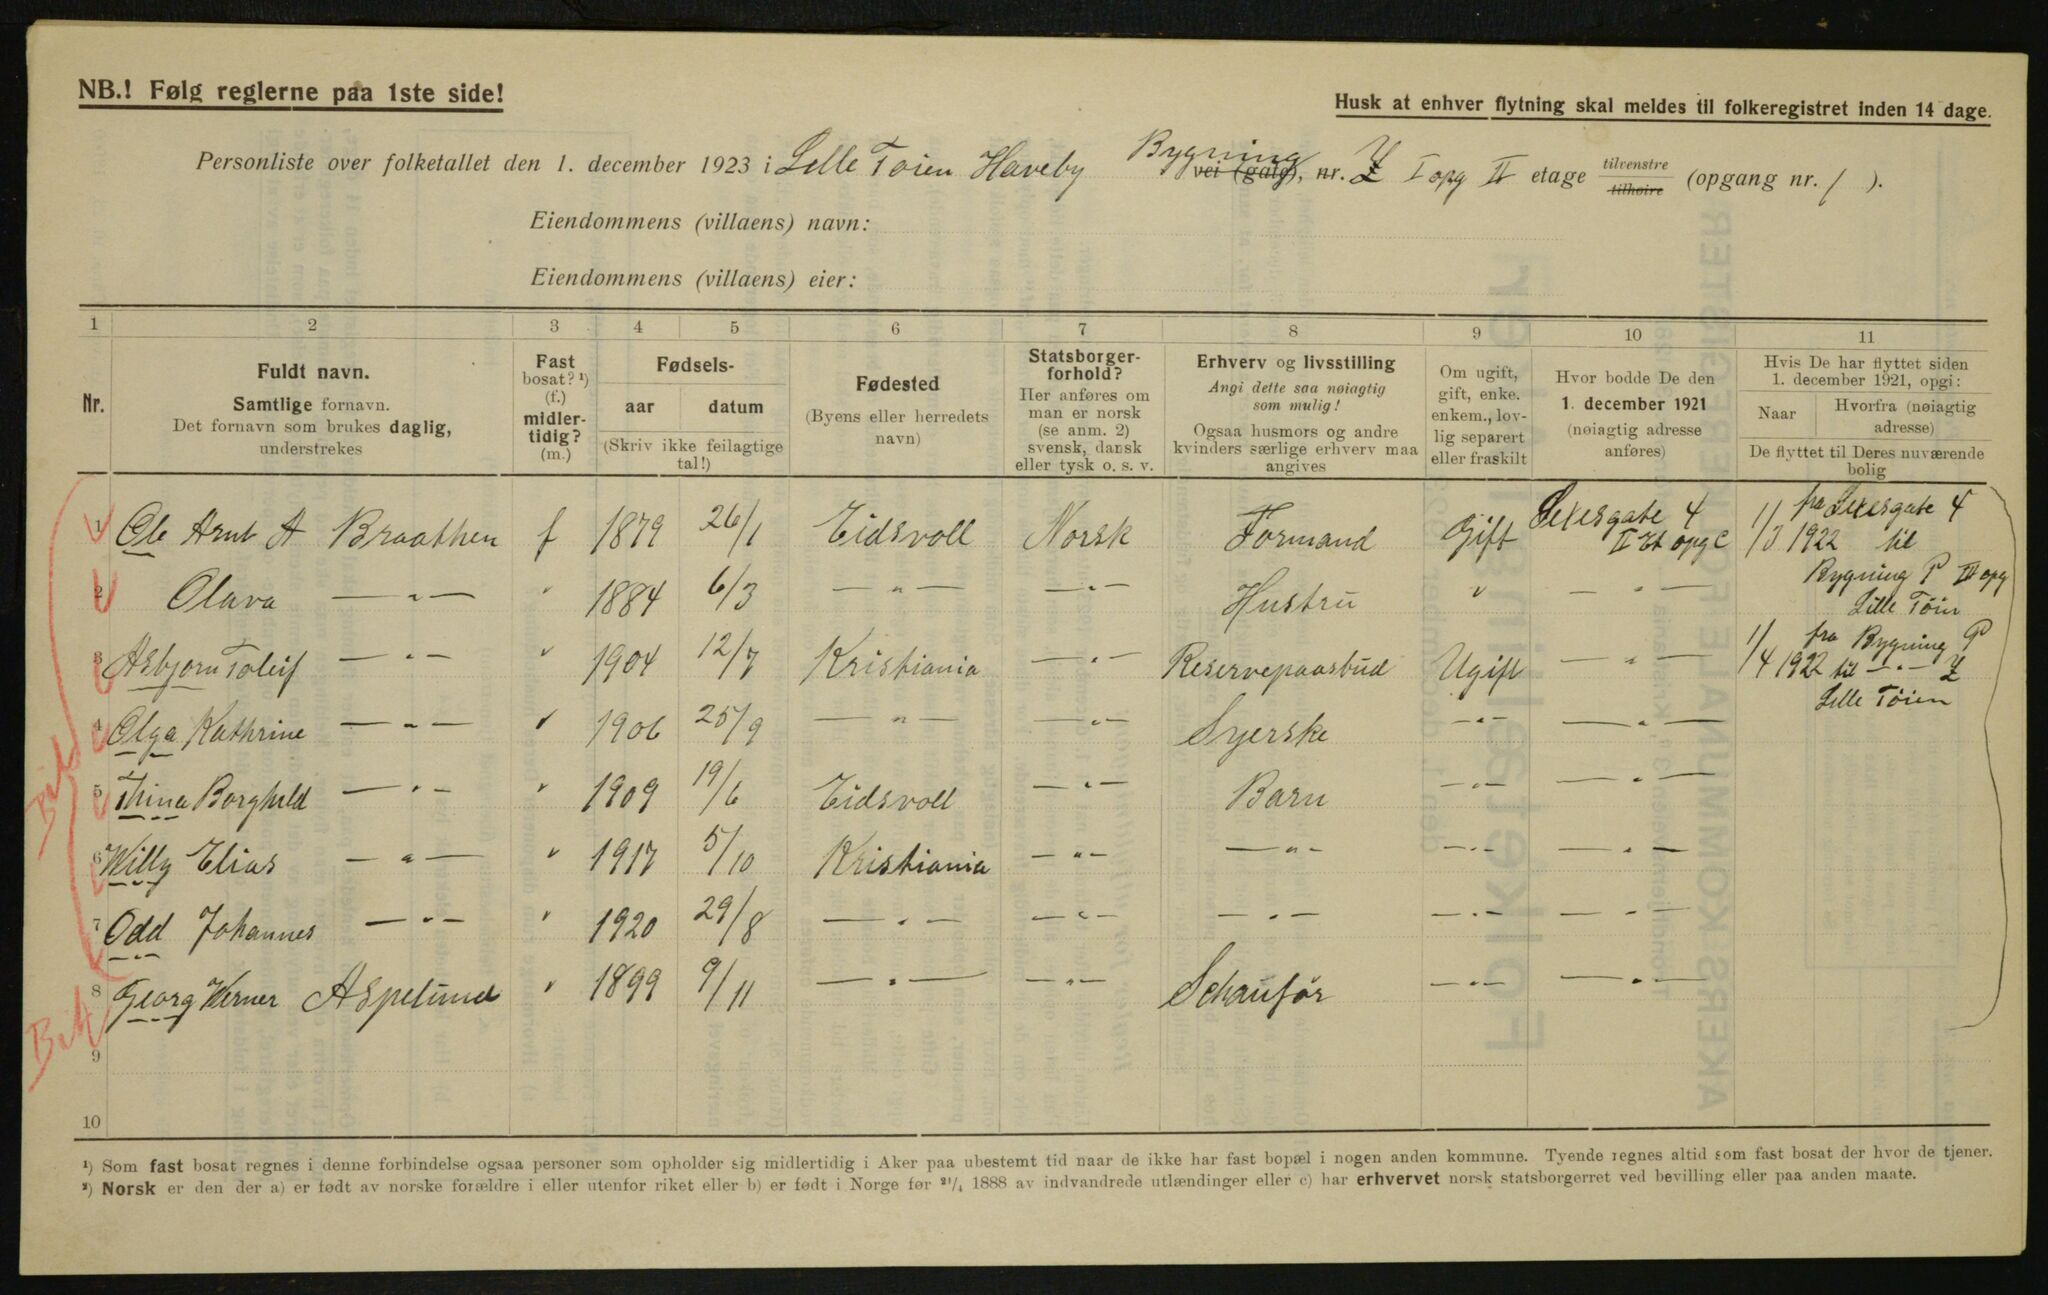 NB.! Følg reglerne paa 1ste side!
Husk at enhver flytning skal meldes til folkeregistret inden 14 dage.
Personliste over folketallet den 1. december 1923 i Lille Tøien Haveby Bygning vei (gate), nr. Z I opg II etage tilvenstre tilhøire (opgang nr. 1 ).
Eiendommens (villaens) navn:
Eiendommens (villaens) eier:
1 2 3 4 5 6 7 8 9 10 11
Nr.
Fuldt navn.
Samtlige fornavn.
Det fornavn som brukes daglig,
understrekes
Fast
bosat? ¹)
(f.)
midler-
tidig?
(m.)
Fødsels-
aar datum
(Skriv ikke feilagtige
tal!)
Fødested
(Byens eller herredets
navn)
Statsborger-
forhold?
Her anføres om
man er norsk
(se anm. 2)
svensk, dansk
eller tysk o. s. v.
Erhverv og livsstilling
Angi dette saa nøiagtig
som mulig!
Ogsaa husmors og andre
kvinders særlige erhverv maa
angives
Om ugift,
gift, enke.
enkem., lov-
lig separert
eller fraskilt
Hvor bodde De den
1. december 1921
(nøiagtig adresse
anføres)
Hvis De har flyttet siden
1. december 1921, opgi:
Naar
Hvorfra (nøiagtig
adresse)
De flyttet til Deres nuværende
bolig
1 Ole Arnt A Braathen f 1879 26/1 Eidsvoll Norsk Formand Gift Sexesgate 4 II Et opg C 1/3 1922 fra Sexesgate 4 til
Bygning P III opg
Lille Tøien
2 Olava — „ — „ 1884 6/3 — „ — — „ — Hustru „ — „ —
3 Asbjørn Toleif — „ — „ 1904 12/7 Kristiania — „ — Reservepaasbud Ugift — „ — 1/4 1922 fra Bygning P
til — „ — Z
Lille Tøien
4 Olga Kathrine — „ — „ 1906 25/9 — „ — — „ — Syerske — „ — — „ —
5 Thina Borghild — „ — „ 1909 19/6 Eidsvoll — „ — Barn — „ — — „ —
6 Willy Elias — „ — „ 1917 5/10 Kristiania — „ — — „ — — „ — — „ —
7 Odd Johannes — „ — „ 1920 29/8 — „ — — „ — — „ — — „ — — „ —
8 Georg Werner Aspelund „ 1899 9/11 — „ — — „ — Schaufør — „ — — „ —
9
10
¹) Som fast bosat regnes i denne forbindelse ogsaa personer som opholder sig midlertidig i Aker paa ubestemt tid naar de ikke har fast bopæl i nogen anden kommune. Tyende regnes altid som fast bosat der hvor de tjener.
²) Norsk er den der a) er født av norske forældre i eller utenfor riket eller b) er født i Norge før ²¹/₄ 1888 av indvandrede utlændinger eller c) har erhvervet norsk statsborgerret ved bevilling eller paa anden maate.